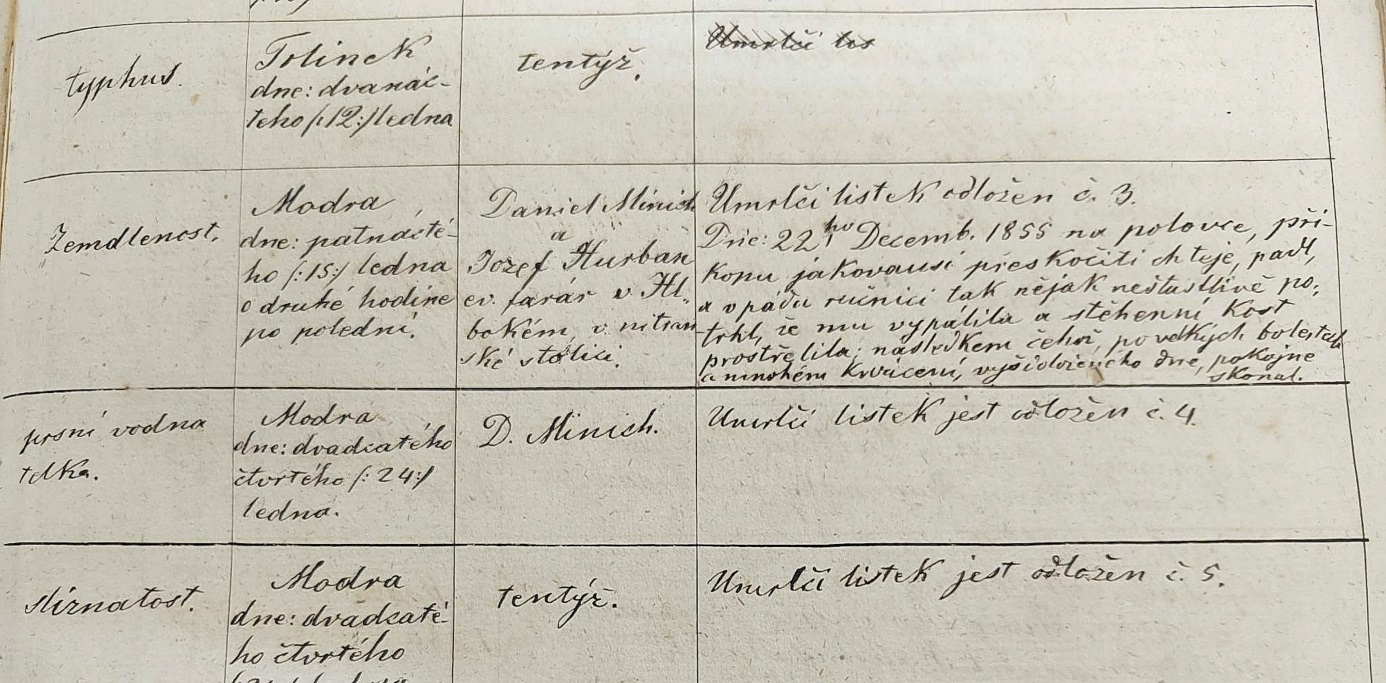 typhus.
Tolinek
dne: dvanác-
teho /:12:/ ledna
tentýž.
Umrlčí lis
Zemdlenost.
Modra
dne: patnácté-
ho /:15:/ ledna
o druhé hodine
po poledni.
Daniel Minich
a
Jozef Hurban
ev. farár v Hl-
bokém v nitran
ské stolici.
Umrlči listek odložen č. 3.
Dne: 22ho Decemb. 1855 na polovce, pří-
kopu jakovausi přeskočiti chtěje, padl,
a v pádu ručnici tak nějak neštastlivě po-
trhl, že mu vypálila a stěhenní kost
prostřelila; následkem čehož, po velkých bolestech
a mnohém krvácení, vyšidoloženého dne, pokojne
skonal.
prsní vodna
telka.
Modra
dne: dvadcatého
čtvrtého /: 24:/
ledna.
D. Minich.
Umrlči listek jest odložen č. 4.
Mirnatost.
Modra
dne: dvadcaté-
ho čtvrtého
tentýž.
Umrlči listek jest odložen č. 5.